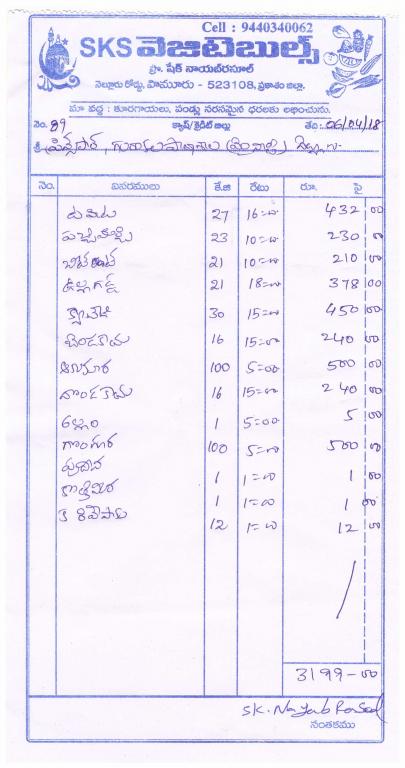 Cell : 9440340062
SKS వెజిటెబుల్స్
ప్రొ. షేక్ నాయబ్‌రసూల్
నెల్లూరు రోడ్డు, పామూరు - 523108, ప్రకాశం జిల్లా.
మా వద్ద : కూరగాయలు, పండ్లు సరసమైన ధరలకు లభించును.
నెం. 89 క్యాష్/క్రెడిట్ బిల్లు తేది: 06/04/18
శ్రీ ప్రిన్సిపాల్, గురుకుల పాఠశాల
నెం. వివరములు కే.జి రేటు రూ. పై
టమాట 27 16=00 432 00
పచ్చిమిర్చి 23 10=00 230 00
బీట్‌రూట్ 21 10=00 210 00
ఉల్లిగడ్డ 21 18=00 378 00
క్యారెట్ 30 15=00 450 00
బెండకాయ 16 15=00 240 00
ఆకుకూర 100 5=00 500 00
దొండకాయ 16 15=00 240 00
అల్లం 1 5=00 5 00
గోంగూర 100 5=00 500 00
పుదీన 1 1=00 1 00
కొత్తిమీర 1 1=00 1 00
కరివేపాకు 12 1=00 12 00
3199-00
SK. Nayab Rasool
సంతకము